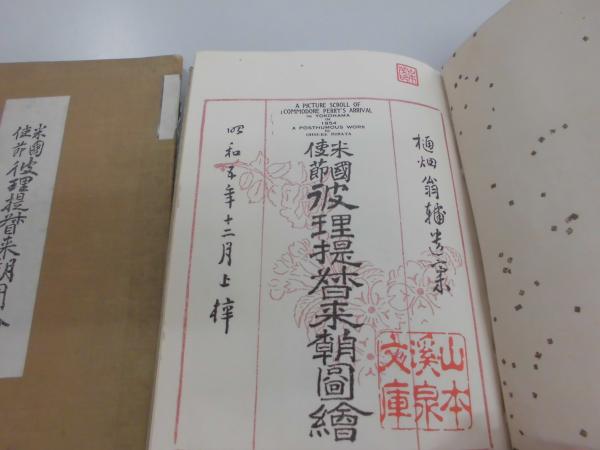 A PICTURE SCROLL OF
COMMODORE PERRY'S ARRIVAL
IN YOKOHAMA
IN
1854
A POSTHUMOUS WORK
樋畑翁輔遺稾
米國
使節
彼理提督来朝圖繪
昭和五年十二月上梓
山本
溪泉
文庫
米國
使節
彼理提督来朝圖